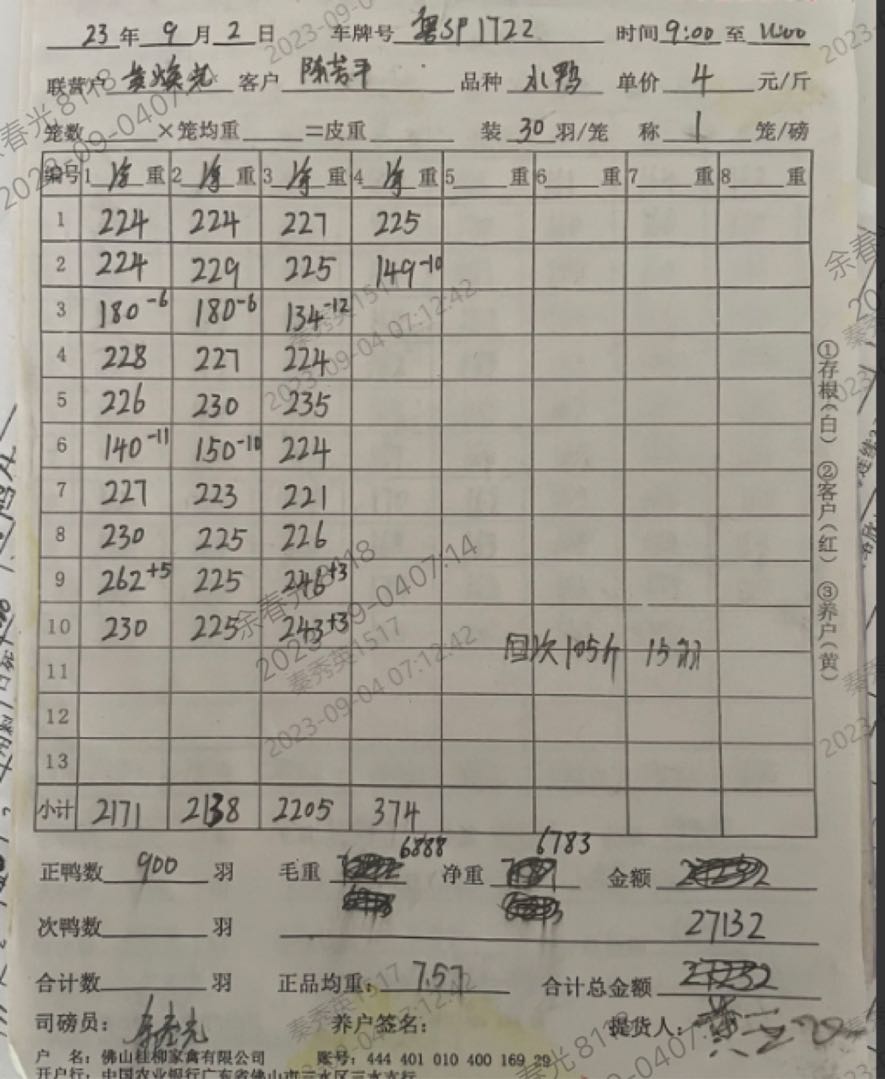 23年9月2日 车牌号 粤SP1722 时间9:00至11:00
联营户 黄焕光 客户 陈芳平 品种 水鸭 单价 4 元/斤
笼数 ×笼均重 =皮重 装 30 羽/笼 称 1 笼/磅
编号 1 净 重 2 净 重 3 净 重 4 净 重 5 重 6 重 7 重 8 重
1 224 224 227 225
2 224 229 225 149-10
3 180-6 180-6 134-12
4 228 227 224
5 226 230 235
6 140-11 150-10 224
7 227 223 221
8 230 225 226
9 262+5 225 246+3
10 230 225 243+3
回次105斤 15羽
11
12
13
小计 2171 2138 2205 374
①存根(白) ②客户(红) ③养户(黄)
6888 6783
正鸭数 900 羽 毛重 净重 金额
次鸭数 羽 27132
合计数 羽 正品均重: 7.57 合计总金额
司磅员: 养户签名: 提货人:
户 名: 佛山桂柳家禽有限公司 账号: 444 401 010 400 169 29
开户行: 中国农业银行广东省佛山市三水区三水支行
余春光8118
2023-09-0407:14
秦秀英1517
2023-09-04 07:12:42